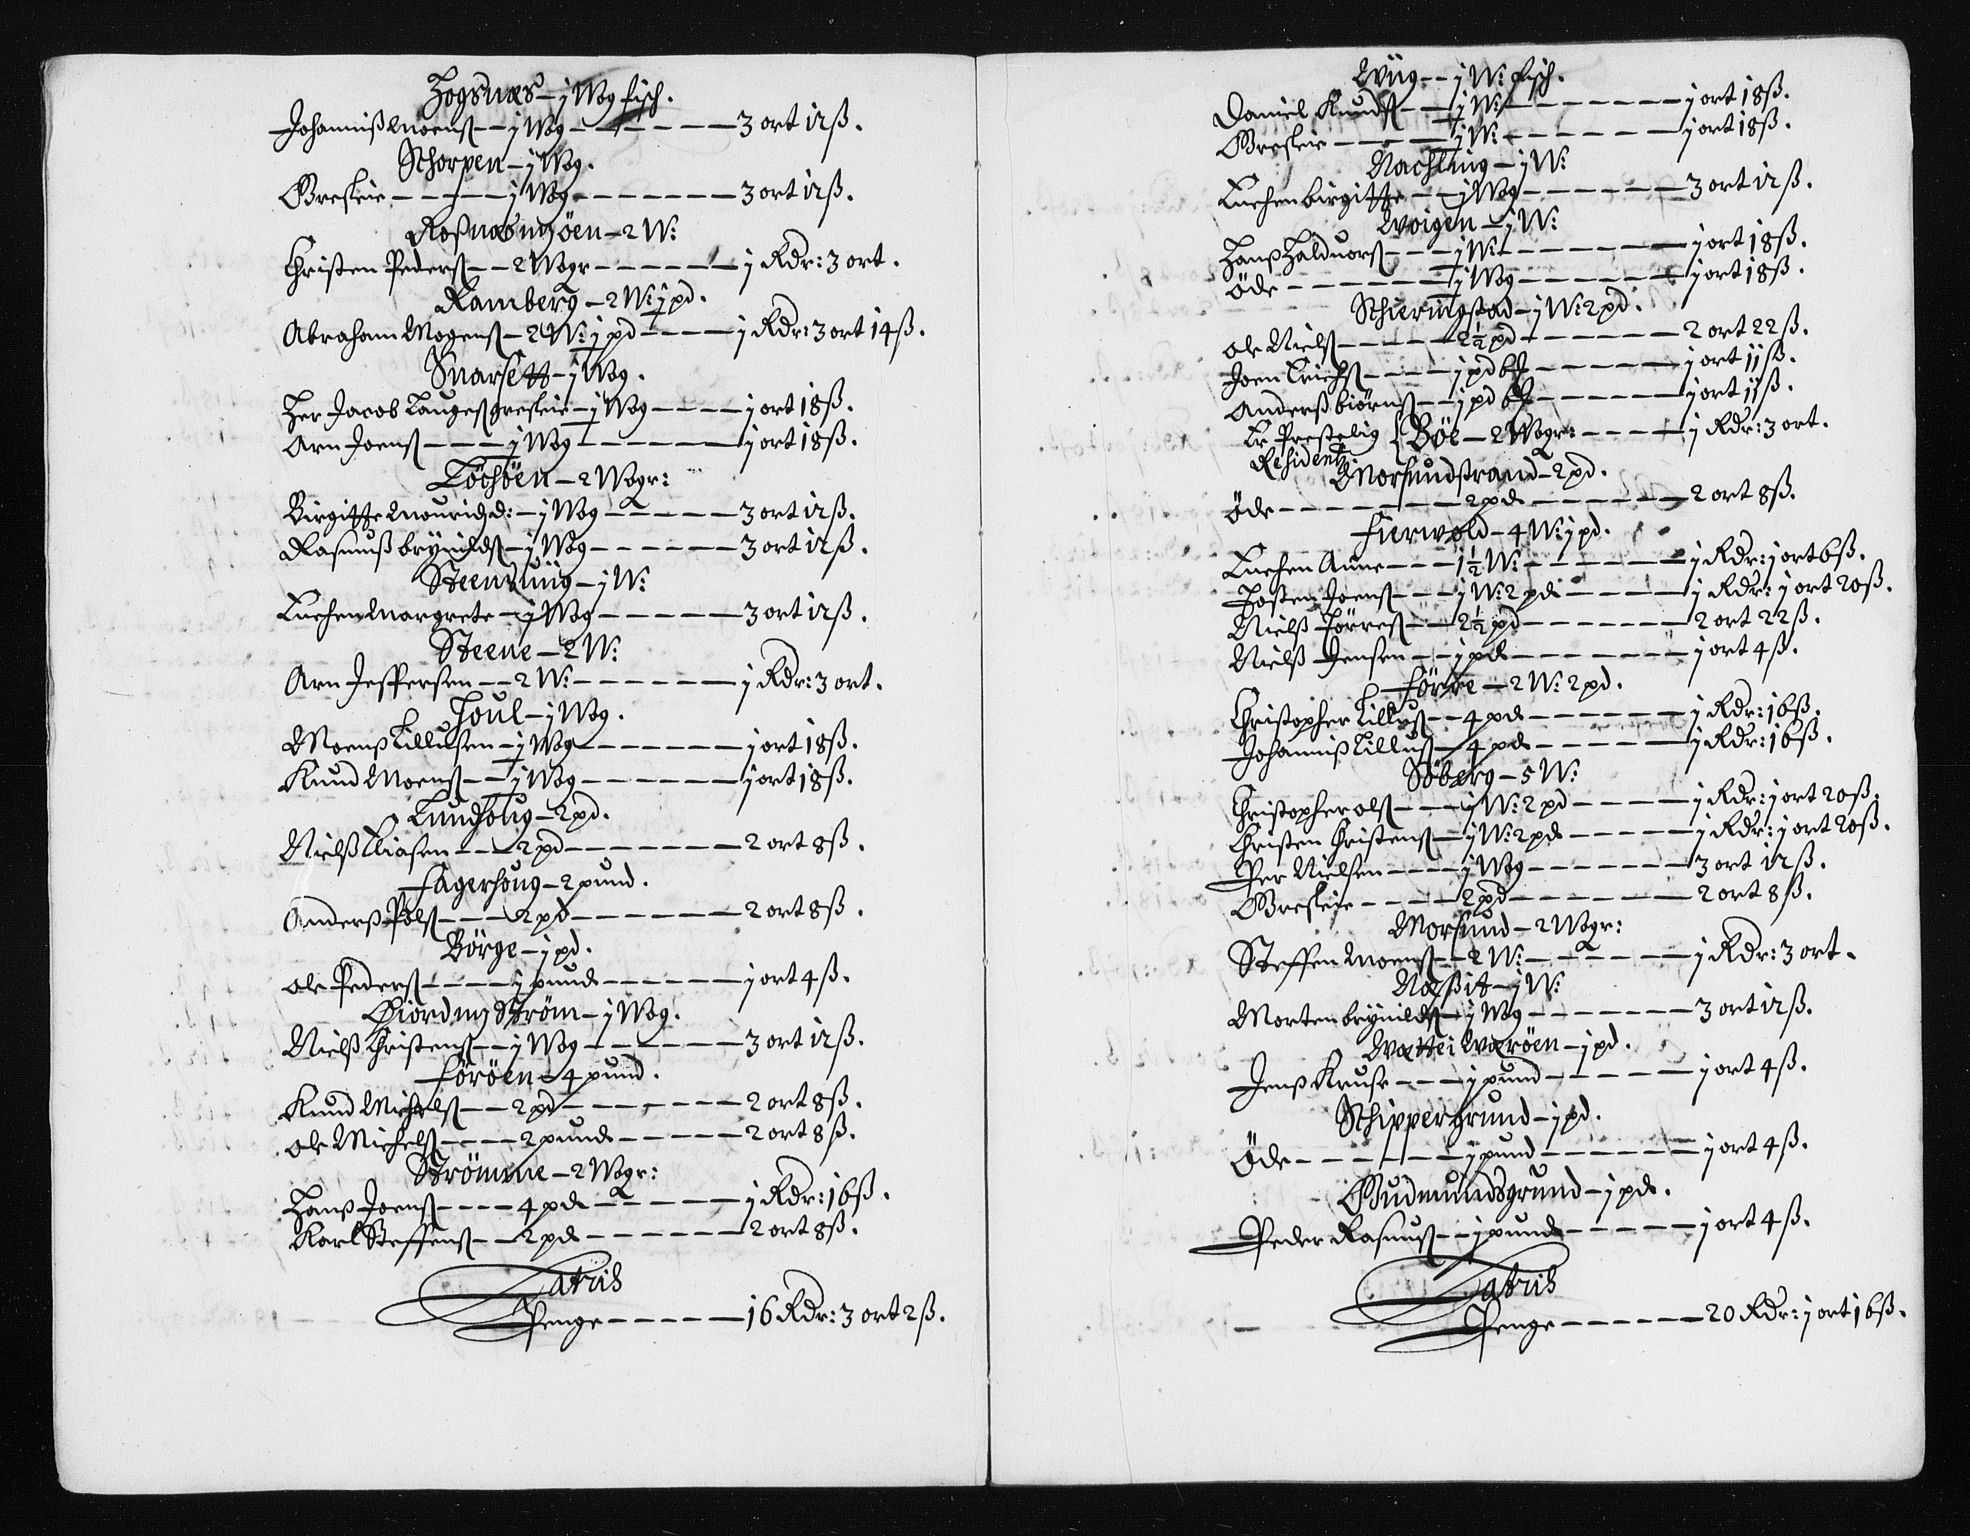 Hogsnæs – j Wog fisch.
Johanniß Moenß – – ½ Wog – – – – – 3 ort 12 ß.
Schorpen – j Wog.
Øreskie – – – – j Wog – – – – – – – 3 ort 12 ß.
Roßnæs miöen – 2 W:
Christen Pederß – – 2 Wogr – – – – – – j Rdr: 3 ort.
Ramberg – 2 W: j pd.
Abraham Mogenß – 2 W: j pd – – – – j Rdr: 3 ort 14 ß.
Snarsett – j Wog.
Her Jacob Laugeß Øreskie – ½ Wog – – – – j ort 18 ß.
Arn Joenß – – – – ½ Wog – – – – – – j ort 18 ß.
Töchöen – 2 Wogr:
Birgitte Mouridzd: – j Wog – – – – – 3 ort 12 ß.
Rasmuß Brynildß – j Wog – – – – – – 3 ort 12 ß.
Steenwiig – j W:
Enchen Margrete – j Wog – – – – – – 3 ort 12 ß.
Steene – 2 W:
Arn Jeffersen – – 2 W: – – – – – – – j Rdr: 3 ort.
Joul – j Wog.
Moenß Tillufsen – ½ Wog – – – – – – j ort 18 ß.
Knud Moenß – – ½ Wog – – – – – – j ort 18 ß.
Lundhoug – 2 pd.
Nielß Eliasen – – – 2 pd – – – – – – – 2 ort 8 ß.
Fagerhoug – 2 pund.
Anderß Polß – – – – 2 pd – – – – – – – 2 ort 8 ß.
Börge – j pd.
Ole Pederß – – – – j pund – – – – – – j ort 4 ß.
Giordmj Ström – j Wog.
Nielß Christenß – – j Wog – – – – – – 3 ort 12 ß.
Föröen – 4 pund.
Knud Michelß – – – 2 pd – – – – – – – 2 ort 8 ß.
Ole Michelß – – – – 2 pund – – – – – – 2 ort 8 ß.
Strömme – 2 Wogr:
Hanß Joenß – – – – 4 pd – – – – – – j Rdr: 16 ß.
Karl Steffenß – – 2 pd – – – – – – – 2 ort 8 ß.
Lateris
Penge – – – – – 16 Rdr: 3 ort 2 ß.
Wiig – – j W: fisch.
Daniel Knudß – – ½ W: – – – – – – – j ort 18 ß.
Øreskie – – – – – ½ W: – – – – – – – j ort 18 ß.
Nachling – j W:
Enchen Birgitte – – j Wog – – – – – – 3 ort 12 ß.
Woigen – j W:
Hanß Halduorß – – – ½ W: – – – – – – – j ort 18 ß.
Öde – – – – – – – ½ Wog – – – – – – j ort 18 ß.
Schieringstad – j W: 2 pd.
Ole Nielß – – – – – 2½ pd – – – – – – 2 ort 22 ß.
Joen Erichß – – – – j pd 6 – – – – – – j ort 11 ß.
Anderß Biörnß – – j pd 6 – – – – – – j ort 11 ß.
Er Prestelig { Böe – 2 Wogr: – – – – – j Rdr: 3 ort.
Residentz
Morsundstrand – 2 pd.
Öde – – – – – – – 2 pd – – – – – – – 2 ort 8 ß.
Fierwold – 4 W: j pd.
Enchen Anne – – – 1½ W: – – – – – – j Rdr: j ort 6 ß.
Josten Joenß – – j W: 2 pd – – – – – j Rdr: j ort 20 ß.
Nielß Jörreß – – 2½ pd – – – – – – – 2 ort 22 ß.
Nielß Jensen – – j pd – – – – – – – j ort 4 ß.
Förre – 2 W: 2 pd.
Christopher Tilluß – – 4 pd – – – – – – j Rdr: 16 ß.
Johanniß Tilluß – 4 pd – – – – – – j Rdr: 16 ß.
Söberg – 5 W:
Christopher Olß – – – j W: 2 pd – – – – j Rdr: j ort 20 ß.
Christen Christenß – j W: 2 pd – – – – – j Rdr: j ort 20 ß.
Per Nielsen – – – – j Wog – – – – – – 3 ort 12 ß.
Øreskie – – – – – 2 pd – – – – – – – 2 ort 8 ß.
Morsund – 2 Wogr:
Steffen Moenß – – 2 W: – – – – – – j Rdr: 3 ort.
Næßit – j W:
Morten Brynildß – j Wog – – – – – – 3 ort 12 ß.
Wættei Wæröen – j pd.
Jenß Kruse – – – – j pund – – – – – – j ort 4 ß.
Schippergrund – j pd.
Öde – – – – – – – j pund – – – – – – j ort 4 ß.
Gudmundsgrund – j pd.
Peder Rasmuß – – j pund – – – – – j ort 4 ß.
Lateris
Penge – – – – – – 20 Rdr: j ort 16 ß.